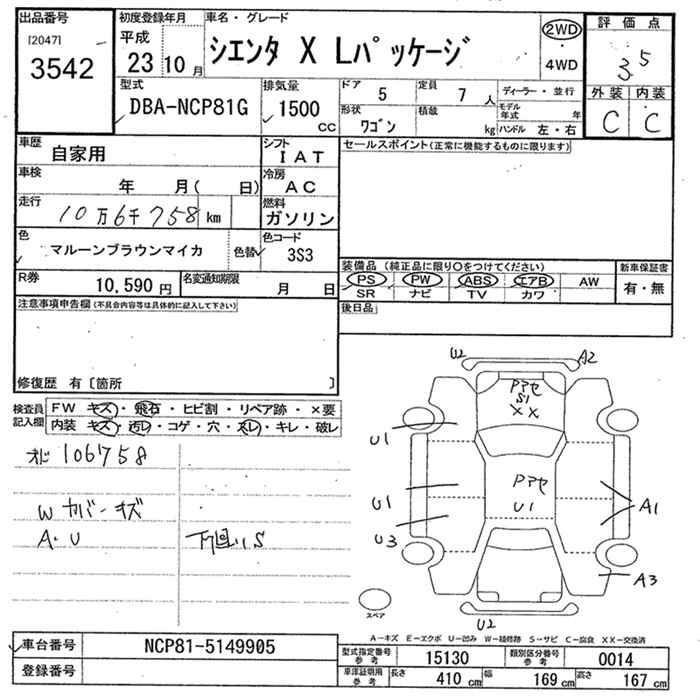 出品番号
[2047]
3542
初度登録年月
平成
23 10 月
車名・グレード
シエンタ X Lパッケージ
2WD
・
4WD
評価点
3.5
外装 内装
C C
型式
DBA-NCP81G
排気量
1500 CC
ドア 5
定員 7 人
形状 ワゴン
積載 kg
ディーラー・並行
モデル年式 年
ハンドル 左・右
車歴
自家用
シフト
IAT
車検
年 月( 日)
冷房
AC
走行
10万6千758 km
燃料
ガソリン
色
マルーンブラウンマイカ
色替
色コード
3S3
R券
10,590 円
名変通知期限
月 日
セールスポイント(正常に機能するものに限ります)
装備品 (純正品に限り○をつけてください)
新車保証書
PS PW ABS エアB AW
SR ナビ TV カワ
有・無
後日品
注意事項申告欄(不具合内容等は具体的に記入して下さい)
修復歴 有[箇所 ]
検査員記入欄
FW キズ・飛石・ヒビ割・リペア跡・×要
内装 キズ・汚レ・コゲ・穴・スレ・キレ・破レ
オド106758
W カバーキズ
A・U
下回りS
U2
A2
Pアセ
S1
XX
U1
U1
Pアセ
U1
A1
U3
A3
U2
スペア
A－キズ E－エクボ U－凹み W－補修跡 S－サビ C－腐食 XX－交換済
車台番号
NCP81-5149905
登録番号
型式指定番号 参考
15130
類別区分番号 参考
0014
車庫証明用 参考
長さ 410 cm
幅 169 cm
高さ 167 cm